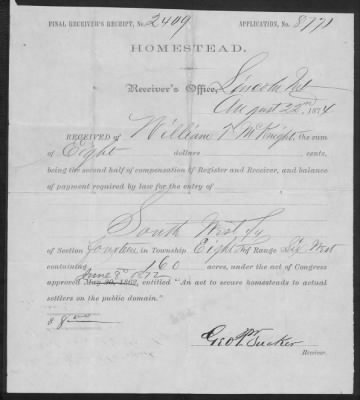 FINAL RECEIVER'S RECEIPT, No. 2409 APPLICATION, No. 8771
HOMESTEAD.
Receiver's Office, Lincoln Neb
August 22nd, 1874
RECEIVED of William McKnight, the sum
of Eight dollars cents,
being the second half of compensation of Register and Receiver, and balance
of payment required by law for the entry of
South West 1/4
of Section fourteen in Township Eight N of Range Six West
containing 160 acres, under the act of Congress
June 8th 1872
approved May 20, 1862, entitled "An act to secure homesteads to actual
settlers on the public domain."
$ 8.00
Geo P. Tucker
Receiver.